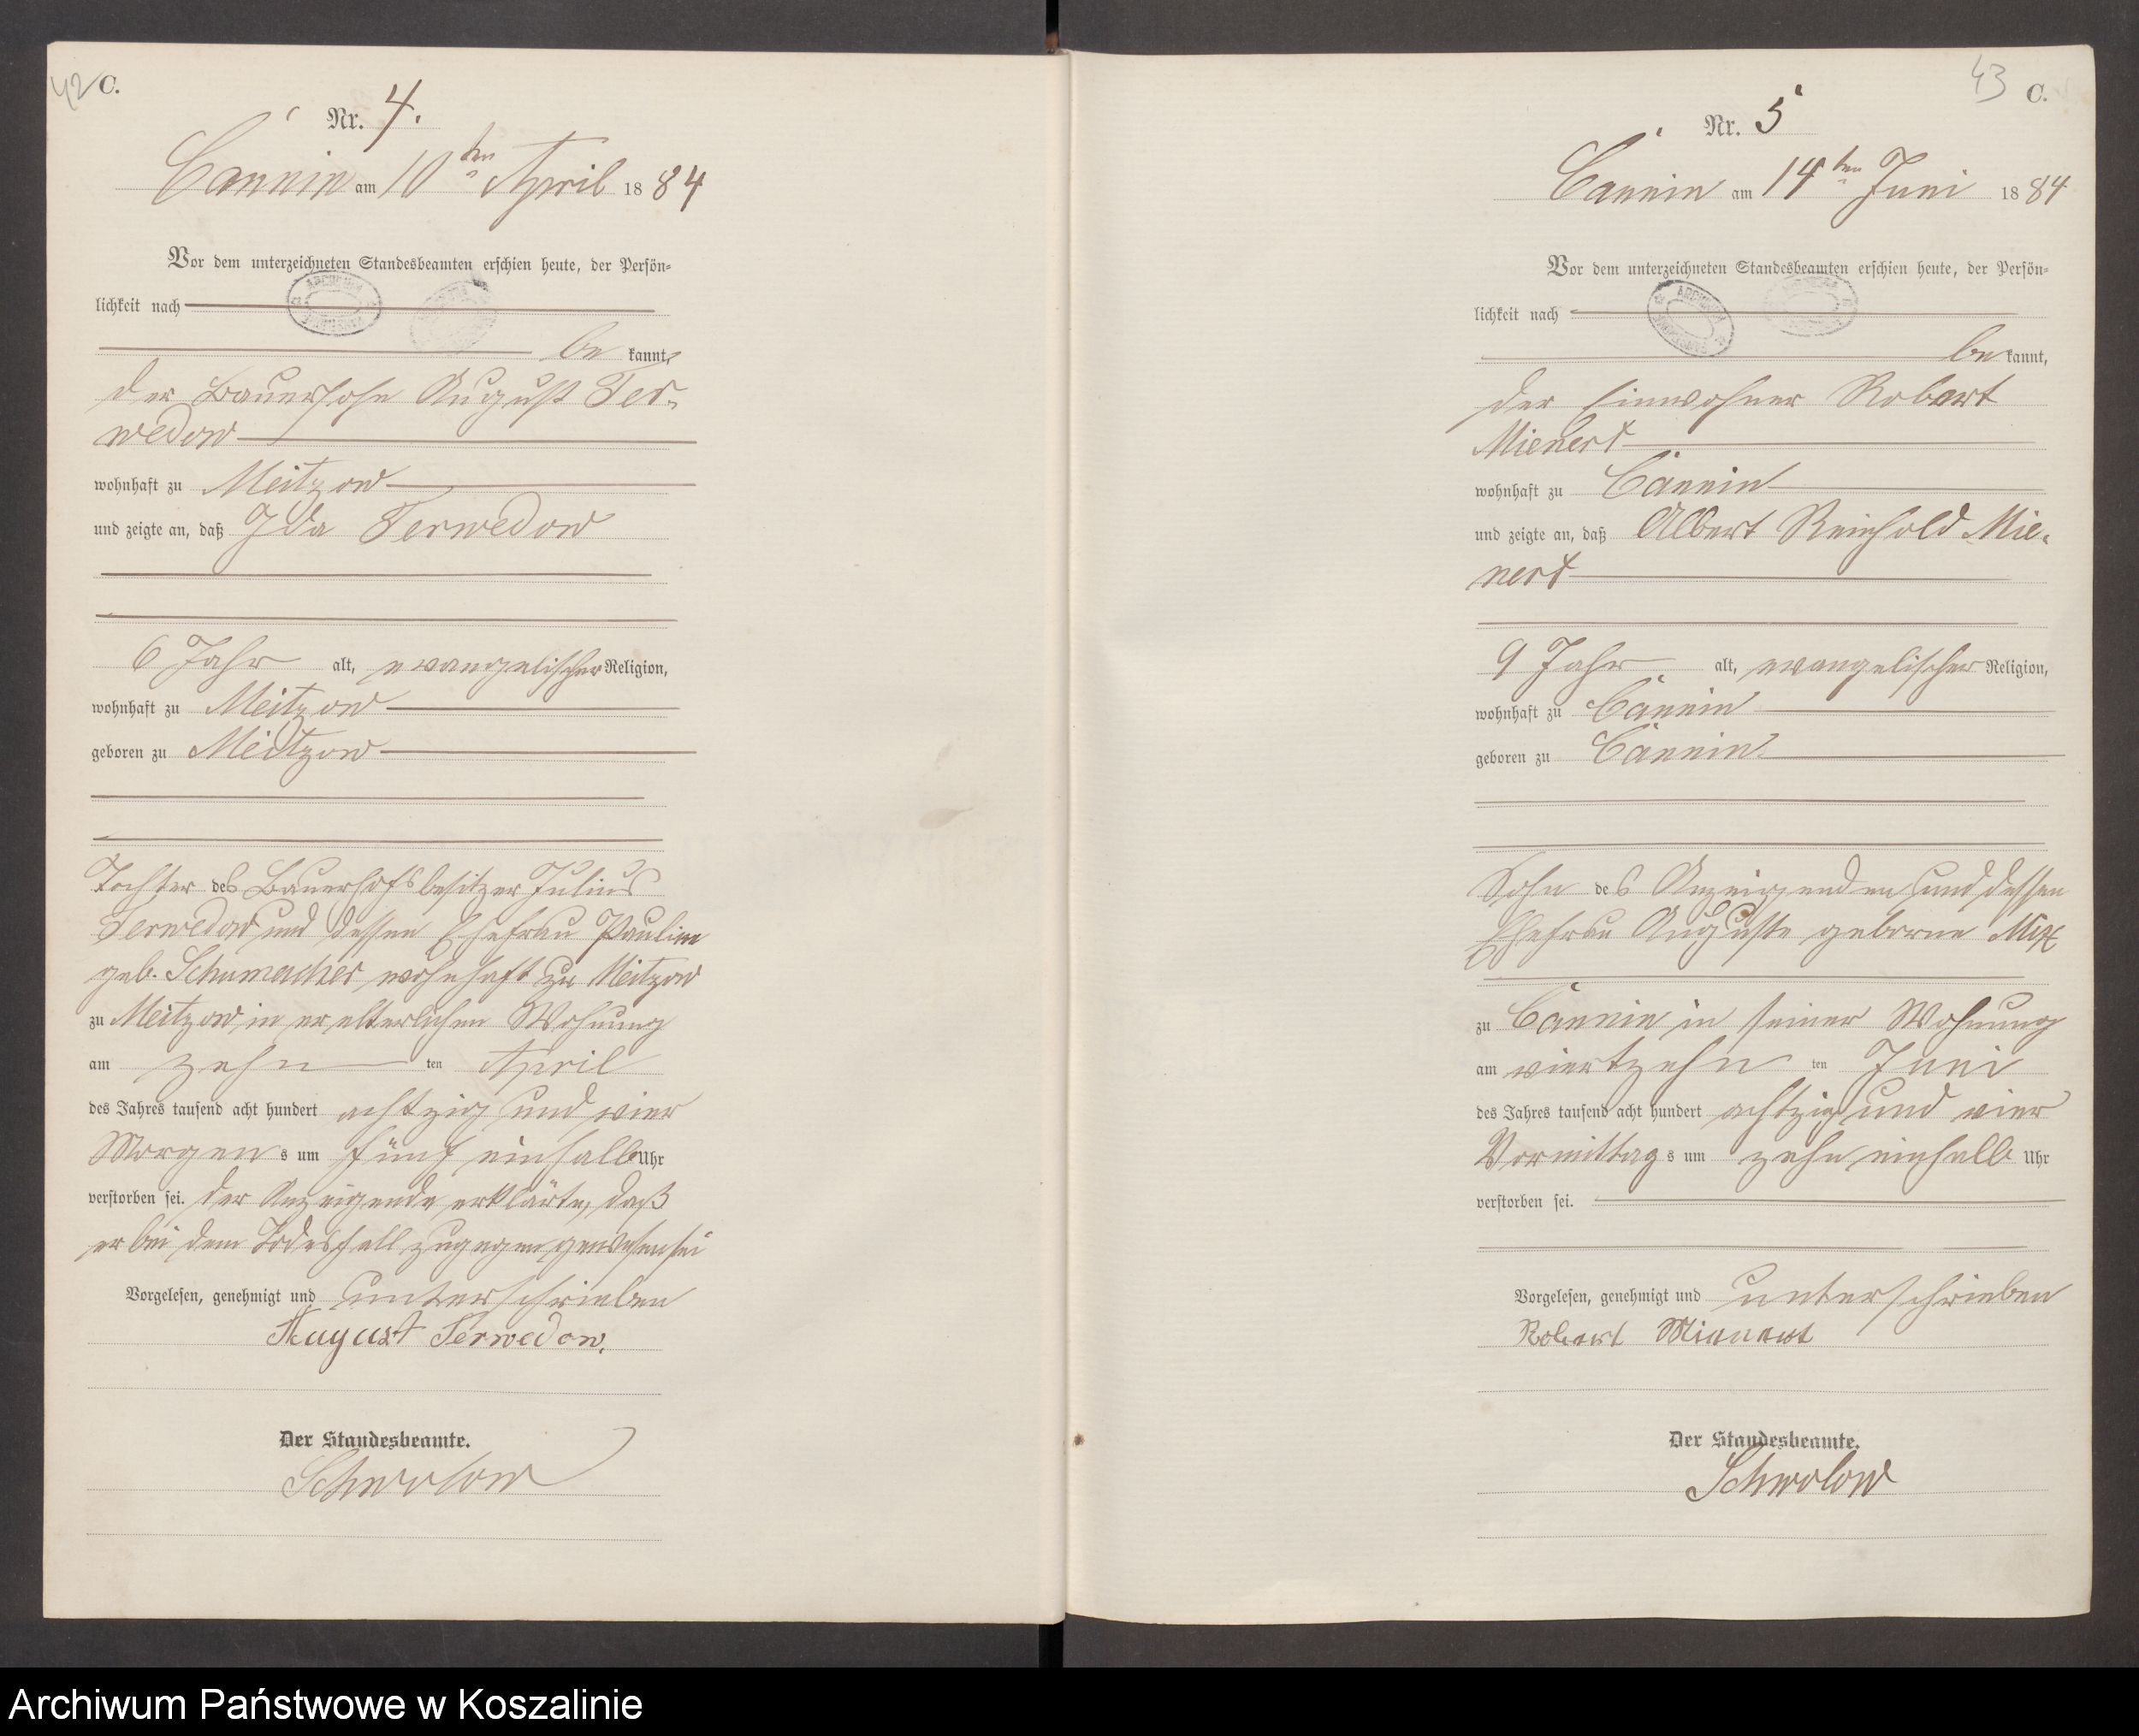 42 C.
Nr. 4.
Cannin am 10ten April 1884
Vor dem unterzeichneten Standesbeamten erschien heute, der Persön-
lichkeit nach
be kannt,
der Bauersohn August Ter-
wedow
wohnhaft zu Meitzow
und zeigte an, daß Ida Terwedow
6 Jahr alt, evangelischer Religion,
wohnhaft zu Meitzow
geboren zu Meitzow
Tochter des Bauerhofsbesitzer Julius
Terwedow und dessen Ehefrau Pauline
geb. Schumacher wohnhaft zu Meitzow
zu Meitzow in er elterlichen Wohnung
am zehn ten April
des Jahres tausend acht hundert achtzig und vier
Morgen s um fünf einhalb Uhr
verstorben sei. der Anzeigende erklärte, daß
er bei dem Todesfall zugegen gewesen sei
Vorgelesen, genehmigt und unterschrieben
August Terwedow.
Der Standesbeamte.
Schwolow
43 C.
Nr. 5
Cannin am 14ten Juni 1884
Vor dem unterzeichneten Standesbeamten erschien heute, der Persön-
lichkeit nach
ARCHIWUM
be kannt,
der Einwohner Robert
Mienert
wohnhaft zu Cannin
und zeigte an, daß Albert Reinhold Mie-
nert
9 Jahr alt, evangelischer Religion,
wohnhaft zu Cannin
geboren zu Cannin
Sohn des Anzeigenden und dessen
Ehefrau Auguste geborne Mix
zu Cannin in seiner Wohnung
am viertzehn ten Juni
des Jahres tausend acht hundert achtzig und vier
Vormittag s um zehn einhalb Uhr
verstorben sei.
Vorgelesen, genehmigt und unterschrieben
Robert Mienert
Der Standesbeamte.
Schwolow
Archiwum Państwowe w Koszalinie